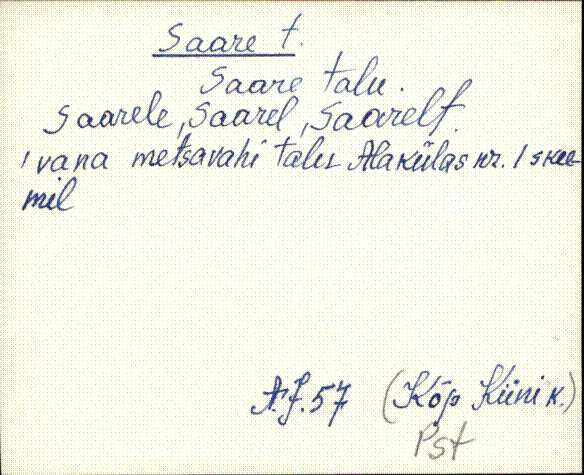 Saare t.
Saare talu.
Saarele, Saarel, Saarelt.
' vana metsavahi talu Alakülas nr. 1 skee
mil
A.J. 57 (Kõp Küni k.)
Pst